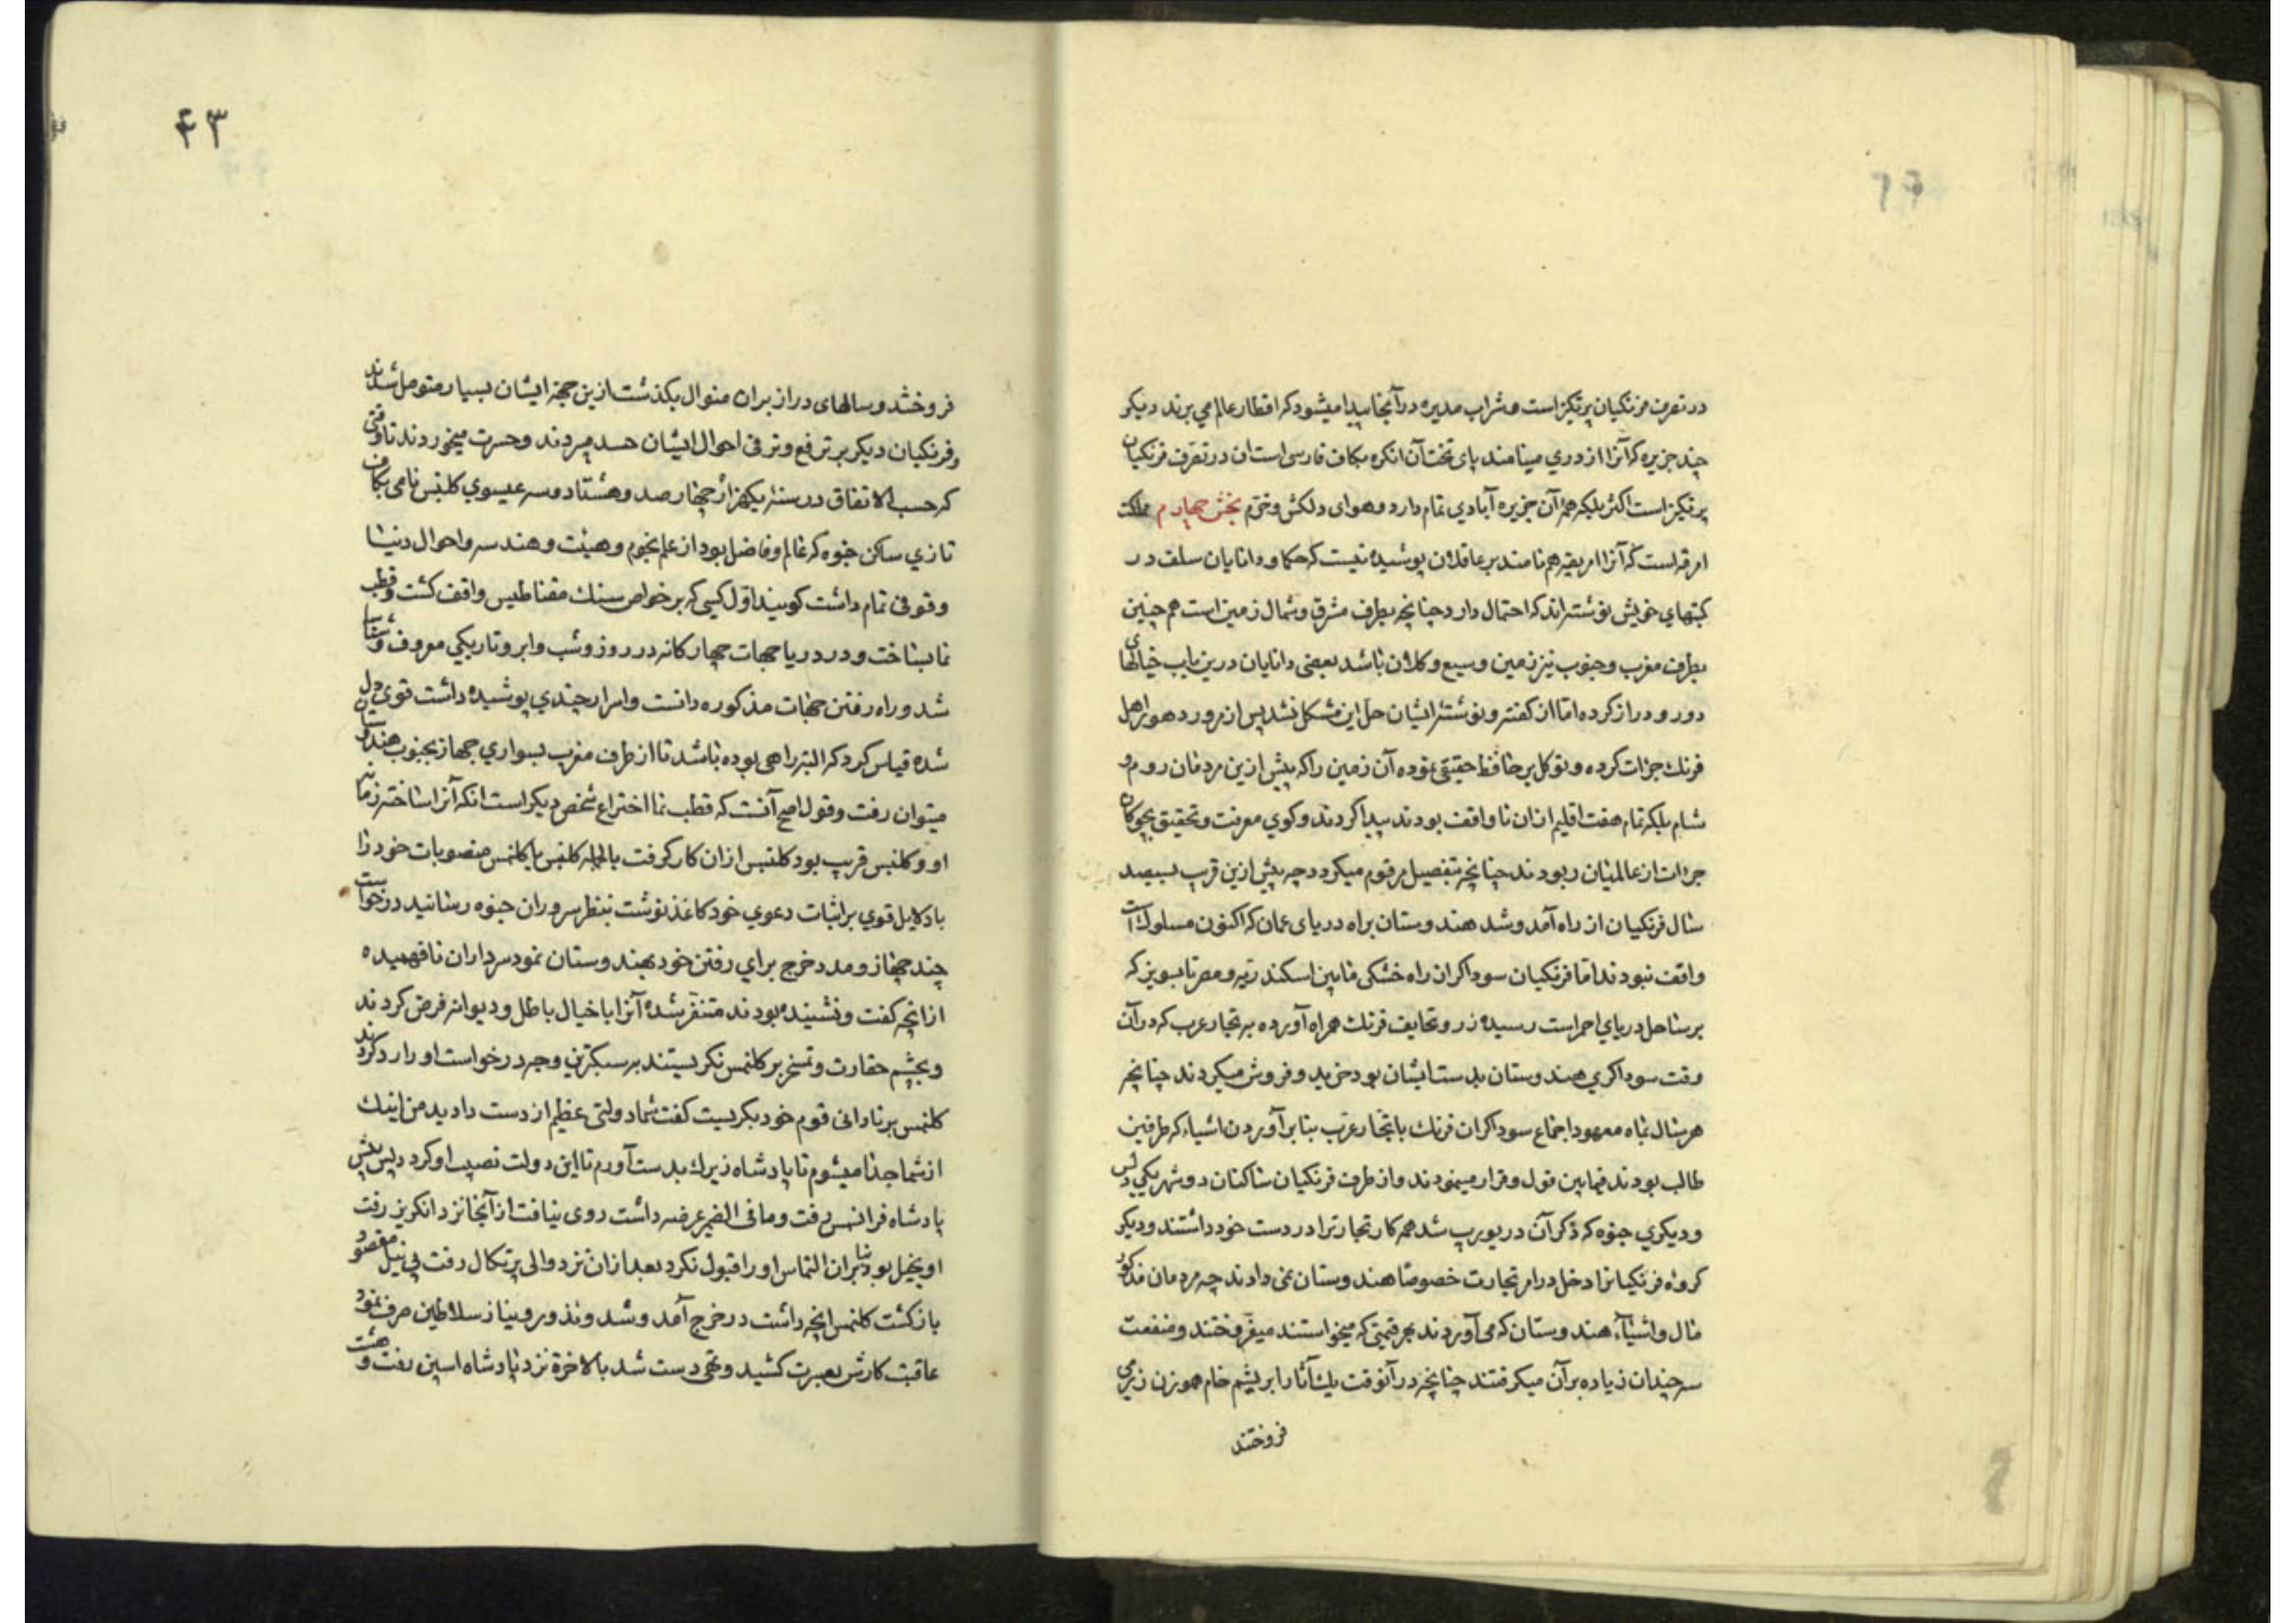 در تصرف فرنکیان پرتکیز است و شراب مدیره در آنجا پیدا میشود که اقطار عالم می برند دیکر
چند جزیره که آنرا ازدری مینامند پای تخت آن انکره بکاف فارسی است ان در تصرف فرنکیان
پرتکیز است اکثر بلکه همه آن جزیره آبادی تمام دارد و هوای دلکش و خرم بخش چهارم ممالک
امرقه است که آنرا امریقیه هم نامند بر عاقلان پوشیده نیست که حکما و دانایان سلف در
کتبهای خویش نوشته اند که احتمال دارد چنانچه بطرف مشرق و شمال زمین است هم چنین
بطرف مغرب و جنوب نیز زمین وسیع و کلان باشد بعضی دانایان درین باب خیالهای
دور و دراز کرده اما از کفته و نوشته ایشان حل این مشکل نشد پس از مرور دهور اهل
فرنک جرات کرده و توکل بر حافظ حقیقی نموده آن زمین را که پیش ازین مردمان روم و
شام بلکه تمام هفت اقلیم ازان ناواقف بودند پیدا کردند و کوی معرفت و تحقیق بچوکان
جرات از عالمیان ربودند چنانچه بتفصیل مرقوم میکردد چه پیش ازین قریب سیصد
سال فرنکیان از راه آمد و شد هندوستان براه دریای عمان که اکنون مسلوک است
واقف نبودند اما فرنکیان سوداکران راه خشکی مابین اسکندریه و مصر تا بسویز که
بر ساحل دریای احمر است رسیده زر و تحایف فرنک همراه آورده به تجار عرب که در آن
وقت سوداکری هندوستان بدست ایشان بود خرید و فروش میکردند چنانچه
هر سال بماه معهود اجتماع سوداکران فرنک با تجار عرب بنابر آوردن اشیاء که طرفین
طالب بودند فیمابین قول و قرار مینمودند و از طرف فرنکیان ساکنان دو شهر یکی
و دیکری جنوه که ذکر آن در یورپ شد همه کار تجارت را در دست خود داشتند و دیکر
کروه فرنکیانرا دخل در امر تجارت خصوصا هندوستان نمی دادند چه مردمان مذکور
مال و اشیآء هندوستان که می آوردند بهر قیمتی که میخواستند میفروختند و منفعت
سه چندان زیاده بر آن میکرفتند چنانچه در آنوقت یک آثار ابریشم خام هموزن زر می
فروختند
۴۳
فروختند و سالهای دراز بران منوال بکذشت ازین جهة ایشان بسیار متومل شدند
و فرنکیان دیکر بر ترفع و ترقی احوال ایشان حسد میبردند و حسرت میخوردند تا وقتی
که حسب الاتفاق در سنه یکهزار چهارصد و هشتاد و سه عیسوی کلنبس نامی بکاف
تازی ساکن جنوه که عالم و فاضل بود از علم نجوم و هیئت و هندسه و احوال دنیا
وقوفی تمام داشت کویند اول کسی که بر خواص سنک مقناطیس واقف کشت و قطب
نما بساخت و در دریا جهات چهارکانه در روز و شب و ابر و تاریکی معروف و شناسا
شد و راه رفتن جهات مذکوره دانست و اسرار چندی پوشیده داشت قوی دل
شده قیاس کرد که البته راهی بوده باشد تا از طرف مغرب بسواری جهاز بجنوب هندوستان
میتوان رفت و قول اصح آنست که قطب نما اختراع شخص دیکر است انکه آنرا ساخته زمان
او و کلنبس قریب بود کلنبس ازان کار کرفت بالجمله کلنبس یا کلنمس منصوبات خود را
با دلایل قوی بر اثبات دعوی خود کاغذ نوشت بنظر سروران جنوه رسانید درخواست
چند جهاز و مدد خرج برای رفتن خود بهندوستان نمود سرداران نافهمیده
ازانچه کفت و نشنیده بودند متنفر شده آنرا با خیال باطل و دیوانه فرض کردند
و بچشم حقارت و تمسخر بر کلنمس نکریستند بر سبکترین وجه درخواست او را رد کردند
کلنمس بر نادانی قوم خود بکریست کفت شما دولتی عظیم از دست دادید من اینک
از شما جدا میشوم تا پادشاه زیرک بدست آورم تا این دولت نصیب او کردد پس پیش
پادشاه فرانس رفت و مافی الضمیر عرضه داشت روی نیافت از آنجا نزد انکریز رفت
او بخیل بود بنا بران التماس او را قبول نکرد بعد ازان نزد والی پرتکال رفت بی نیل مقصود
بازکشت کلنمس انچه داشت در خرج آمد و شد و نذور و نیاز سلاطین صرف نمود
عاقبت کارش بعسرت کشید و تهی دست شد بالاخرة نزد پادشاه اسپین رفت و هشت